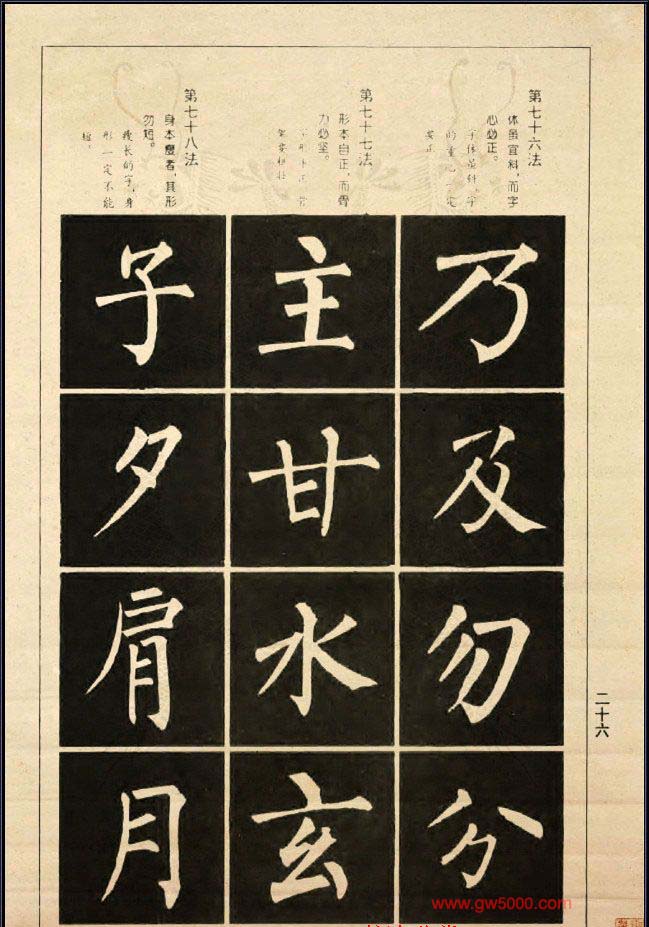 第七十六法
体虽宜斜，而字
心必正。
字体虽斜，字
的重心一定
要正。
乃及勿分
第七十七法
形本自正，而骨
力必坚。
字形本正，骨
架要
主甘水玄
第七十八法
身本瘦者，其形
勿短。
瘦长的字，身
形一定不能
短。
子夕肩月
二十六
www.gw5000.com